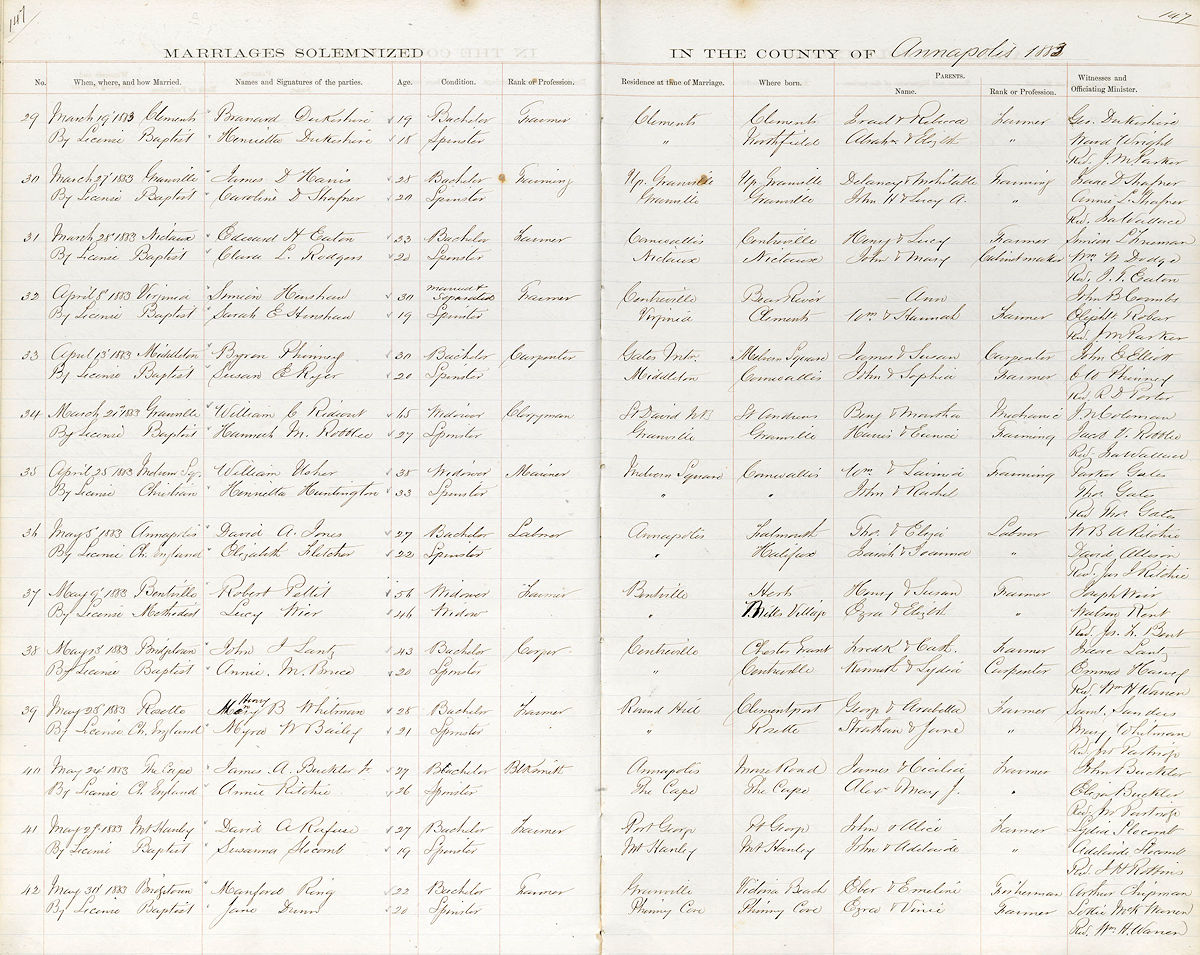 147
147
MARRIAGES SOLEMNIZED IN THE COUNTY OF Annapolis 1883
No. When, where, and how Married. Names and Signatures of the parties. Age. Condition. Rank or Profession. Residence at time of Marriage. Where born. PARENTS. Name. Rank or Profession. Witnesses and Officiating Minister.
29 March 19th 1883 Clements Branard Dukeshire 19 Bachelor Farmer Clements Clements & Rebecca Farmer Geo. Dukeshire
By License Baptist Henrietta Dukeshire 18 Spinster " Northfield Abrahm & Elizth " Ward Wright
Rev. J. M. Parker
30 March 27th 1883 Granville James D Harris 28 Bachelor Farming Up. Granville Up. Granville Delancy & Mehitable Farming Isaac D Shafner
By License Baptist Caroline D Shafner 20 Spinster Granville Granville John H & Lucy A. " Annie E Shafner
Rev. Wallace
31 March 28th 1883 Nictaux Edward H Eaton 33 Bachelor Farmer Cornwallis Centreville Henry & Lucy Farmer Simeon L Freeman
By License Baptist Clara L. Rodgers 20 Spinster Nictaux Nictaux John & Mary Cabinet maker Wm N Dodge
Rev. Eaton
32 April 8th 1883 Virginia Simeon Henshaw 30 married & Separated Farmer Centreville Bear River — Ann John B Coombs
By License Baptist Sarah E Henshaw 19 Spinster Virginia Clements Wm & Hannah Farmer
Rev. J. M. Parker
33 April 13th 1883 Middleton Byron Phinney 30 Bachelor Carpenter Gates Mtn. Melvern Square James & Susan Carpenter John E Elliott
By License Baptist Susan E Roger 20 Spinster Middleton Cornwallis John & Sophia Farmer Phinney
Rev. R D Porter
34 March 21st 1883 Granville William C Rideout 45 Widower Clergyman St David NB St Andrews Benj & Martha Mechanic J N Coleman
By License Baptist Hannah M. Robblee 27 Spinster Granville Granville Harris & Eunice Farming Jacob V. Robblee
Rev. Wallace
35 April 25 1883 Melvern Sq. William Usher 38 Widower Mariner Melvern Square Cornwallis Wm & Lavinia Farming Parker Gates
By License Christian Henrietta Huntington 33 Spinster " " John & Rachel Thos. Gates
Rev Thos. Gates
36 May 5th 1883 Annapolis David A. Jones 27 Bachelor Labrer Annapolis Falmouth Thos. & Eliza Labrer W B A Ritchie
By License Ch. England Elizabeth Fletcher 22 Spinster " Halifax Isaiah & Joanna " David Allison
Rev. Jas J Ritchie
37 May 9th 1883 Bentville Robert Pettit 56 Widower Farmer Bentville Henry & Susan Farmer Joseph Weir
By License Methodist Lucy Wier 46 Widow " Mills Village Ezra & Elizbth " Watson Kent
Rev. Jos. H. Bent
38 May 13th 1883 Bridgetown John I Lantz 43 Bachelor Cooper Centreville Chester Grant Fredk & Cath. Farmer Isaac Lantz
By License Baptist Annie. M. Bruce 20 Spinster " Centreville Kenneth & Lydia Carpenter Emma Harvey
Rev. Wm H Warren
39 May 23rd 1883 Rosette Henry B Whitman 28 Bachelor Farmer Round Hill Clementsport George & Arabella Farmer Saml. Sanders
By License Ch. England Myra W Bailey 21 Spinster " Rosette & Jane " Mary Whitman
Rev Jno Partrige
40 May 24th 1883 The Cape James A. Buckler Jr 27 Bachelor Blksmith Annapolis Morse Road James & Cicilia Farmer John Buckler
By License Ch. England Annie Ritchie 26 Spinster The Cape The Cape Alex & Mary J. " Eliza Buckler
Rev. Jno Partrige
41 May 27th 1883 Mt Hanley David A Rafuse 27 Bachelor Farmer Port George Pt George John & Alice Farmer Lydia Slocomb
By License Baptist Susanna Slocomb 19 Spinster Mt Hanley Mt Hanley John & Adelaide " Adelaide Slocomb
Rev. J H Robbins
42 May 31st 1883 Bridgetown Manford Ring 22 Bachelor Farmer Granville Victoria Beach Eber & Emeline Fisherman Arthur Chipman
By License Baptist Jane Dunn 20 Spinster Phinny Cove Phinny Cove Ezra & Vinie Farmer Lottie McK Warren
Rev. Wm. H. Warren